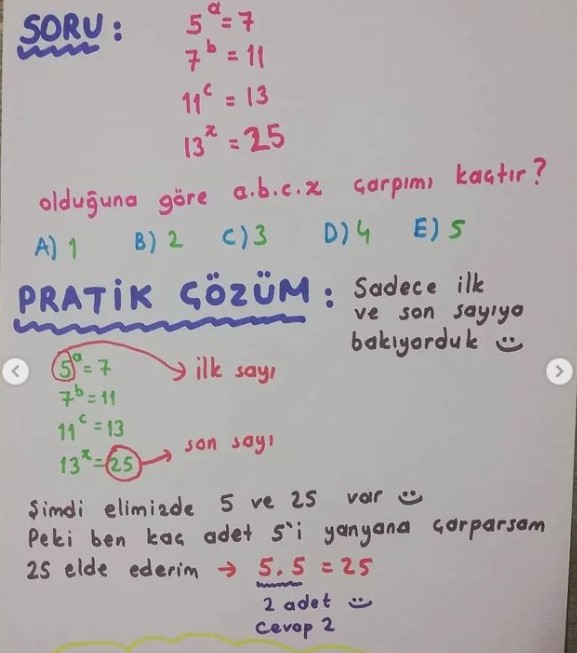 SORU :
5ᵃ = 7
7ᵇ = 11
11ᶜ = 13
13ˣ = 25
olduğuna göre a.b.c.x çarpımı kaçtır?
A) 1 B) 2 C) 3 D) 4 E) 5
PRATİK ÇÖZÜM :
Sadece ilk
ve son sayıya
bakıyorduk
5ᵃ = 7 → ilk sayı
7ᵇ = 11
11ᶜ = 13
13ˣ = 25 → son sayı
Şimdi elimizde 5 ve 25 var
Peki ben kaç adet 5'i yanyana çarparsam
25 elde ederim → 5.5 = 25
2 adet
Cevap 2